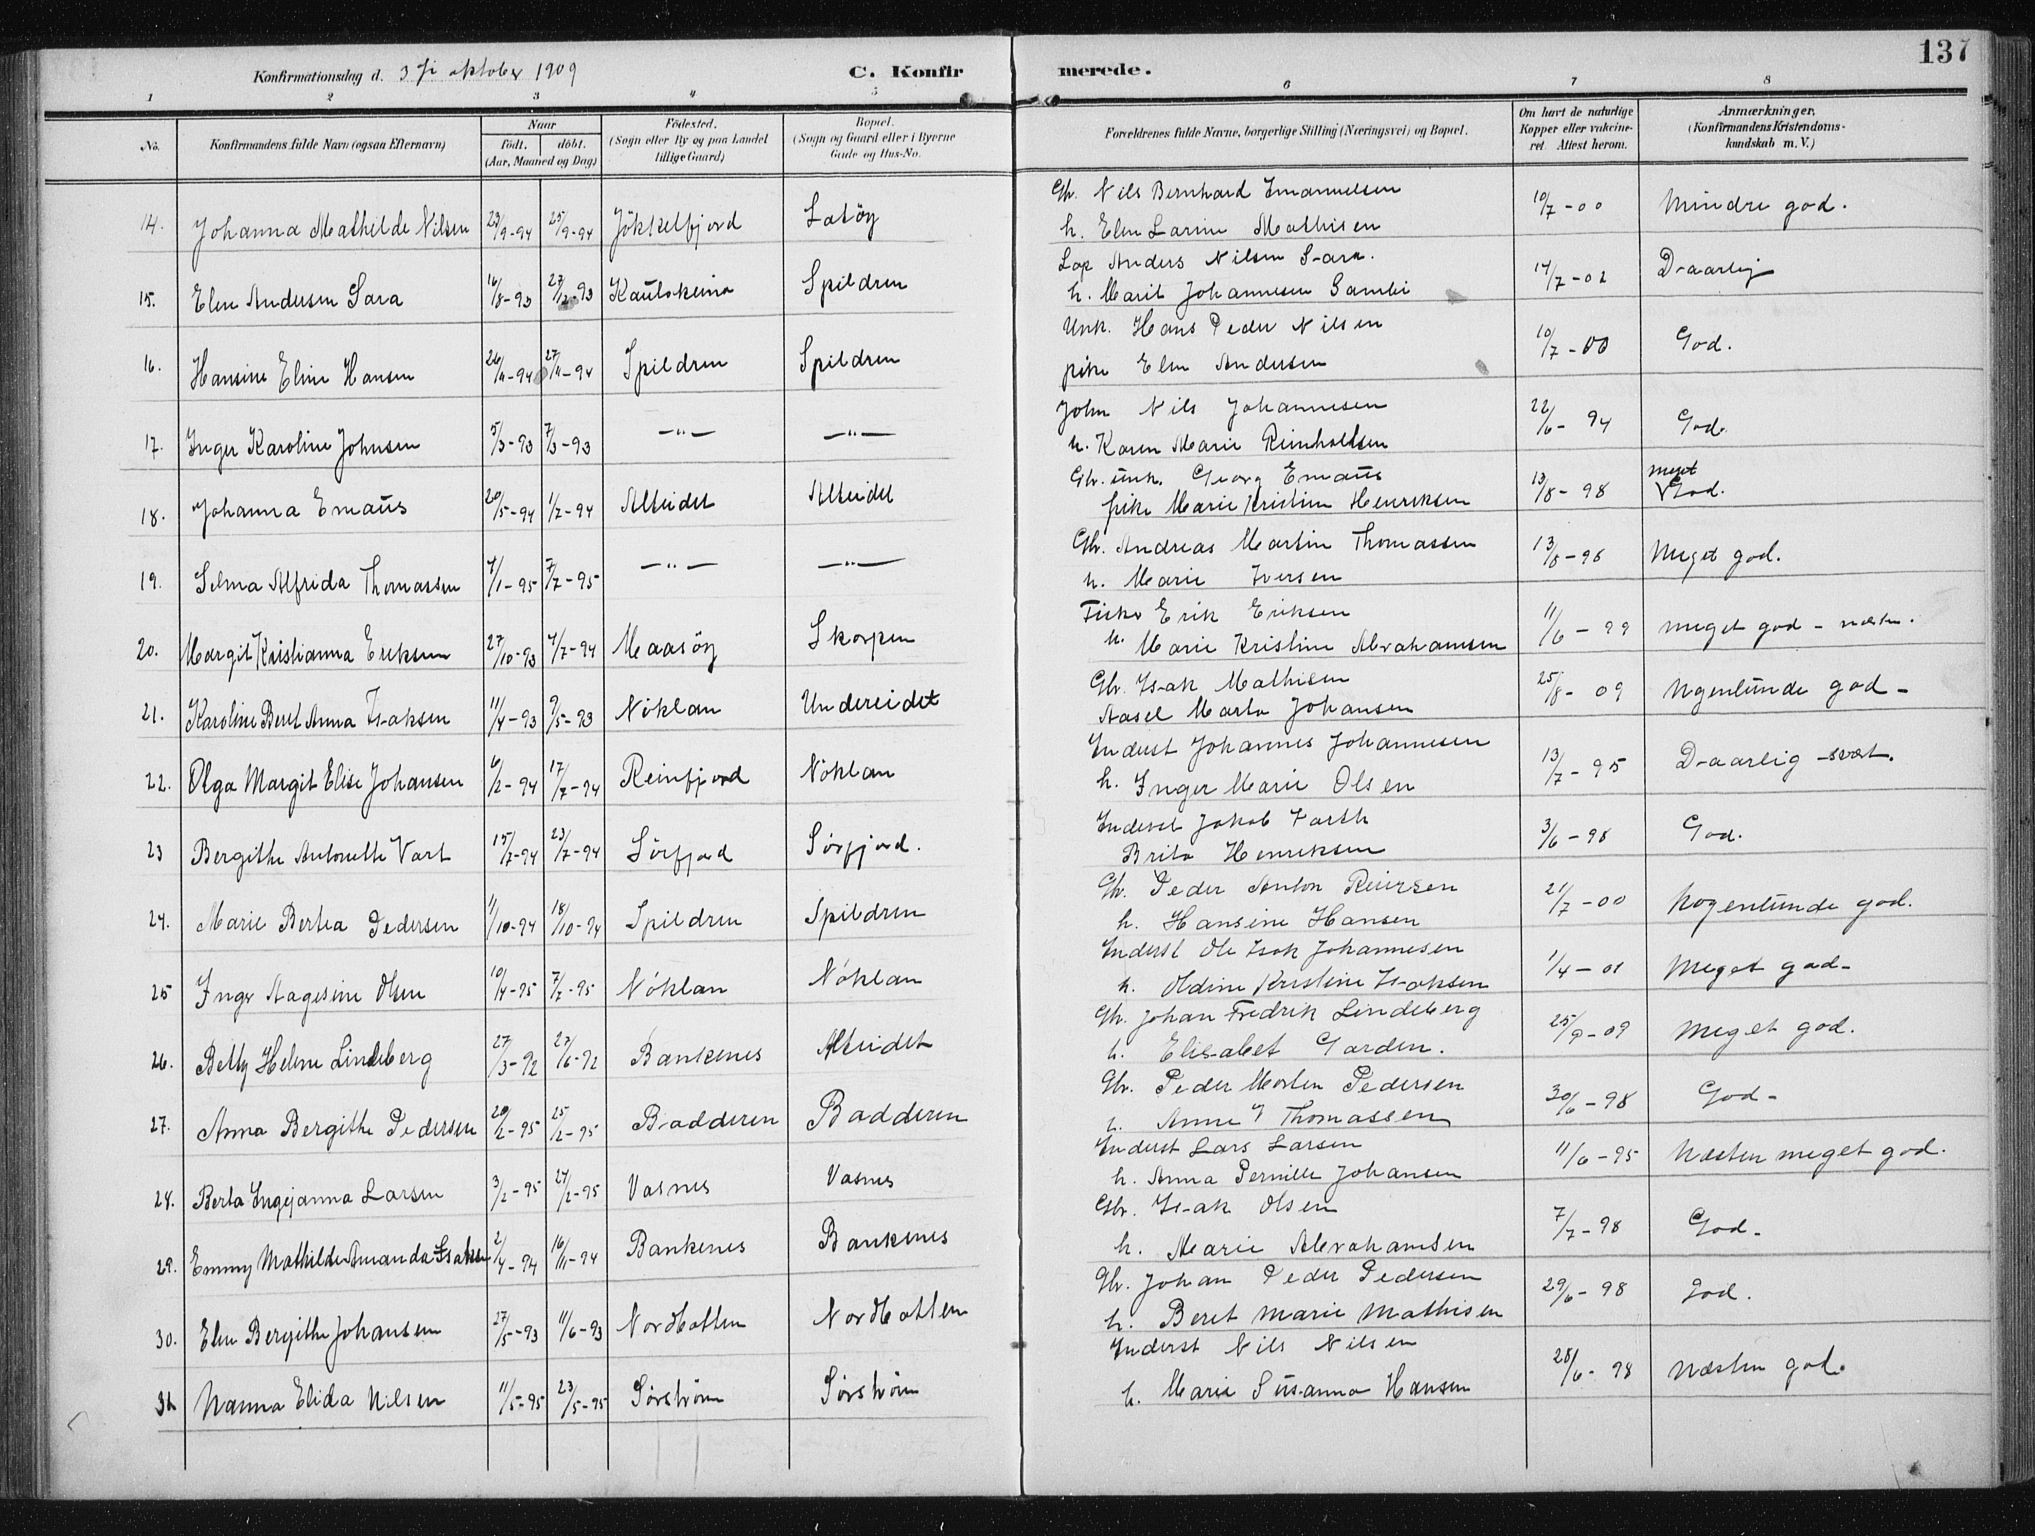 137
Konfirmationsdag d. 3die oktober 1909 C. Konfirmerede.
1 2 3 4 5 6 7 8
No. Konfirmandens fulde Navn (ogsaa Efternavn) Naar født. døbt. (Aar, Maaned og Dag) Fødested. (Sogn eller By og paa Landet tillige Gaard) Bopæl. (Sogn og Gaard eller i Byerne Gade og Hus-No. Forældrenes fulde Navne, borgerlige Stilling (Næringsvei) og Bopæl. Om havt de naturlige Kopper eller vakcineret. Attest herom. Anmærkninger, (Konfirmandens Kristendomskundskab m. V.)
14. Johanna Mathilde Nilsen 23/9-94 25/9-94 Jökkelfjord Latöy Gbr. Nils Bernhard Emanuelsen 10/7-00 Mindre god.
h. Elen Larine Mathisen
15. Elen Andersen Sara 16/8-93 27/12-93 Kautokeino Spildren Lap Anders Nilsen Sara. 14/7-02 Daarlig
h. Marit Johannesen Gambi
16. Hansine Eline Hansen 26/11-94 27/11-94 Spildren Spildren Unk. Hans Peder Nilsen 10/7-00 God.
pike Elen Andersen
17. Inger Karoline Johnsen 5/3-93 7/3-93 —"— —"— John Nils Johannesen 22/6-94 God.
h. Karen Marie Reinholdsen
18. Johanna Emaus 20/5-94 1/7-94 Alteidet Alteidet Gbr. unk. Georg Emaus 13/8-98 meget God.
pike Marie Kristine Henriksen
19. Selma Alfrida Thomassen 4/1-95 7/7-95 —"— —"— Gbr. Andreas Martin Thomassen 13/8-98 Meget god.
h. Marie Iversen
20. Margit Kristianna Eriksen 27/10-93 4/7-94 Maasöy Skorpen Fisker Erik Eriksen 11/6-99 meget god - næsten.
h. Marie Kristine Abrahamsen
21. Karoline Beret Anna Isaksen 11/4-93 9/5-93 Nöklan Undereidet Gbr. Isak Mathisen 25/8-09 Nogenlunde god -
Aasel Marta Johansen
22. Olga Margit Elise Johansen 6/2-94 17/7-94 Reinfjord Nöklan Inderst Johannes Johannesen 13/7-95 Daarlig -svært.
h. Inger Marie Olsen
23 Bergithe Antonette Vart 15/7-94 23/7-94 Sörfjord Sörfjord. Inderst Jakob Varth 3/6-98 God.
Brita Henriksen
24. Marie Bertea Pedersen 1/10-94 18/10-94 Spildren Spildren Gbr. Peder Anton Reiersen 21/7-00 Nogenlunde god.
h. Hansine Hansen
25 Inger Aagesine Olsen 10/4-95 7/7-95 Nöklan Nöklan Inderst Ole Isak Johannesen 1/4-01 Meget god-
h. Oldine Kristine Isaksen
26. Betty Helene Lindeberg 27/3-92 27/6-92 Bankenes Alteidet Gbr. Johan Fredrik Lindeberg 25/9-09 Meget god.
h. Elisabet Garden.
27. Anna Bergithe Pedersen 20/2-95 25/2-95 Badderen Badderen Gbr. Peder Morten Pedersen 30/6-98 God-
h. Anne Thomassen
28. Berta Ingejanna Larsen 3/2-95 27/2-95 Vasnes Vasnes Inderst Lars Larsen 11/6-95 Næsten meget god.
h. Anna Pernille Johansen
29. Emmy Mathilde Amanda Isaksen 2/4-94 16/11-94 Bankenes Bankenes Gbr. Isak Olsen 7/7-98 God-
h. Marie Abrahamsen
30. Elen Bergithe Johansen 27/5-93 11/6-93 Nordkotten Nordkotten Gbr. Johan Peder Pedersen 29/6-98 God.
h. Beret Marie Mathisen
31. Nanna Elida Nilsen 11/5-95 23/5-95 Sörströmen Sörströmen Inderst Nils Nilsen 28/6-98 Næsten god.
h. Marie Susanna Hansen